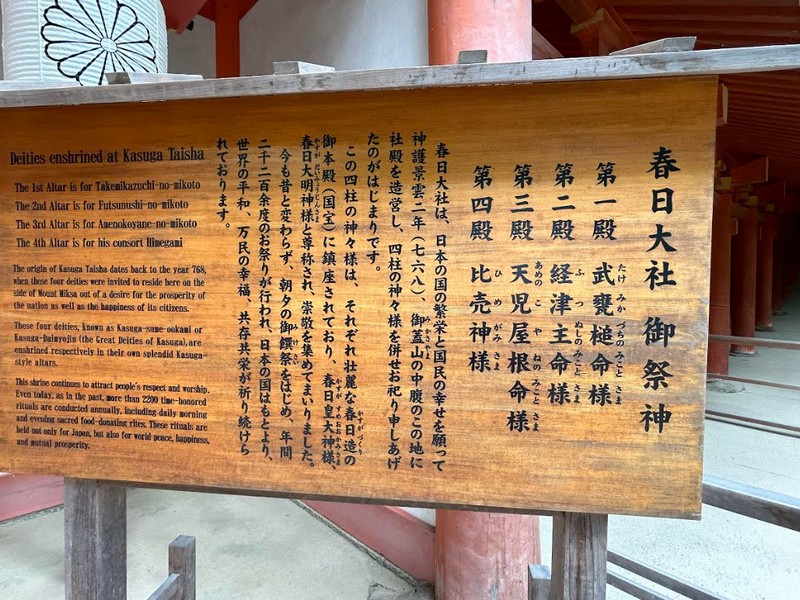 春日大社 御祭神
第一殿 武甕槌命様
第二殿 経津主命様
第三殿 天児屋根命様
第四殿 比売神様
春日大社は、日本の国の繁栄と国民の幸せを願って
神護景雲二年（七六八）、御蓋山の中腹のこの地に
社殿を造営し、四柱の神々様を併せお祀り申しあげ
たのがはじまりです。
この四柱の神々様は、それぞれ壮麗な春日造の
御本殿（国宝）に鎮座されており、春日皇大神様、
春日大明神様と尊称され、崇敬を集めてまいりました。
今も昔と変わらず、朝夕の御饌祭をはじめ、年間
二千二百余度のお祭りが行われ、日本の国はもとより、
世界の平和、万民の幸福、共存共栄が祈り続けら
れております。
Deities enshrined at Kasuga Taisha
The 1st Altar is for Takemikazuchi-no-mikoto
The 2nd Altar is for Futsunushi-no-mikoto
The 3rd Altar is for Amenokoyane-no-mikoto
The 4th Altar is for his consort Himegami
The origin of Kasuga Taisha dates back to the year 768,
when these four deities were invited to reside here on the
side of Mount Mikasa out of a desire for the prosperity of
the nation as well as the happiness of its citizens.
These four deities, known as Kasuga-sume-ookami or
Kasuga-Daimyojin (the Great Deities of Kasuga), are
enshrined respectively in their own splendid Kasuga-
style altars.
This shrine continues to attract people's respect and worship.
Even today, as in the past, more than 2200 time-honored
rituals are conducted annually, including daily morning
and evening sacred food-donating rites. These rituals are
held not only for Japan, but also for world peace, happiness,
and mutual prosperity.